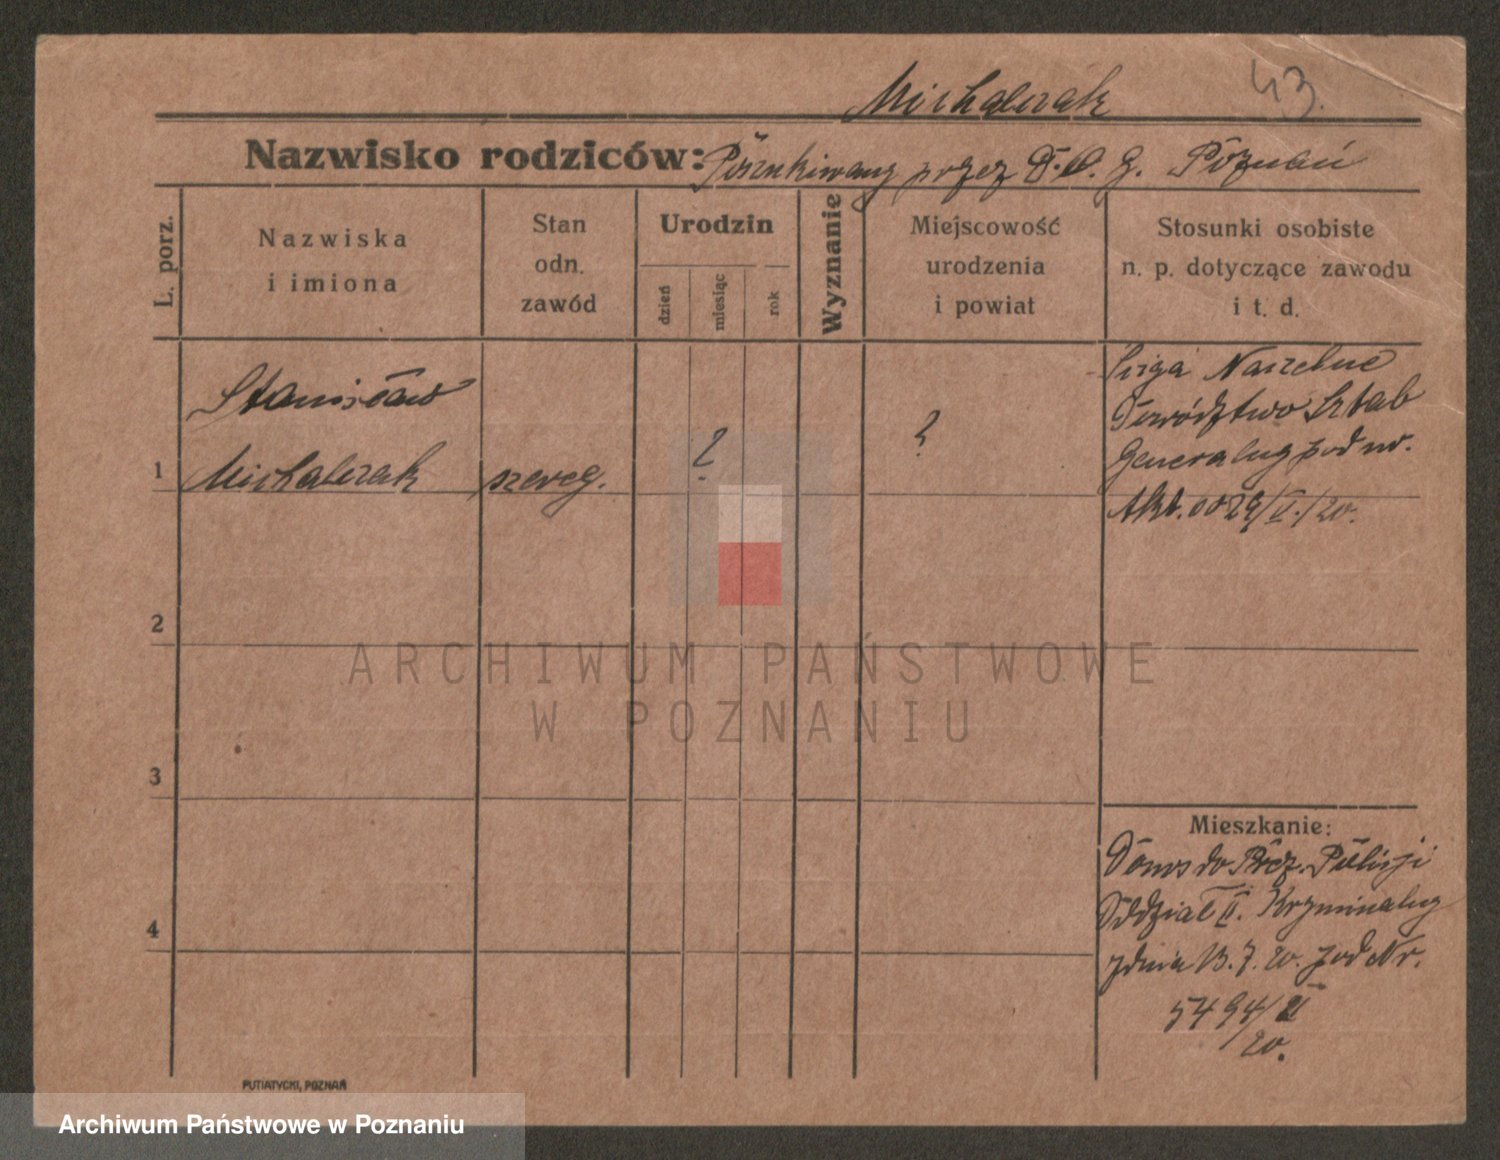 Michalczak
43.
Nazwisko rodziców: Poszukiwany przez D. O. G. Poznań
L. porz.
Nazwiska
i imiona
Stan
odn.
zawód
Urodzin
dzień
miesiąc
rok
Wyznanie
Miejscowość
urodzenia
i powiat
Stosunki osobiste
n. p. dotyczące zawodu
i t. d.
Stanisław
1 Michalczak szereg. ? ?
Naczelne
Dowództwo Sztab
Generalny pod nr.
0029/V./20.
2
3
4
Mieszkanie:
Donos do Prez. Policji
Oddział II. Kryminalny
z dnia 13.7.20. pod Nr.
5494/II
20.
PUTIATYCKI, POZNAŃ
ARCHIWUM PAŃSTWOWE
W POZNANIU
Archiwum Państwowe w Poznaniu